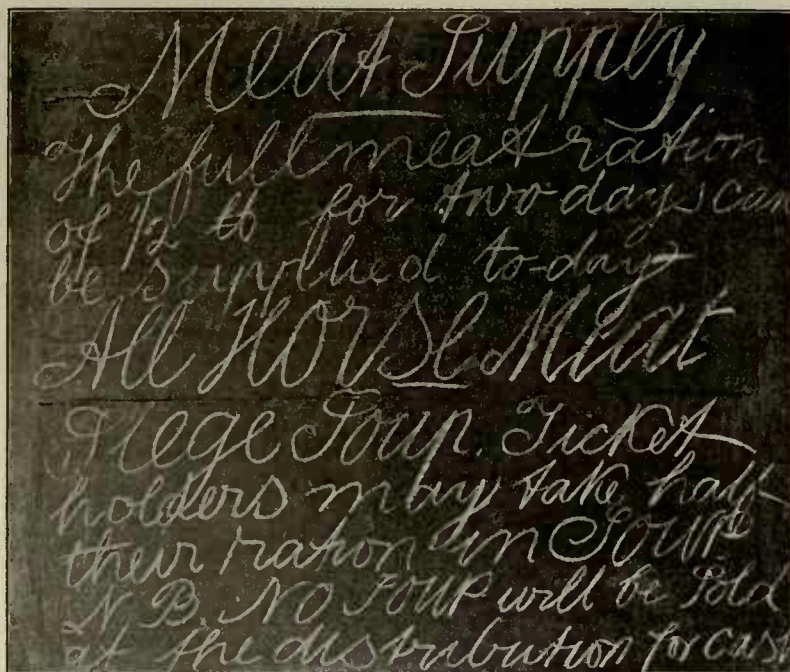 Meat Supply
The full meat ration
of 1/2 ℔ for two days can
be supplied to-day
All Horse Meat
Siege Soup. Ticket
holders may take half
their ration in Soup
N.B. No Soup will be Sold
at the distribution for cash